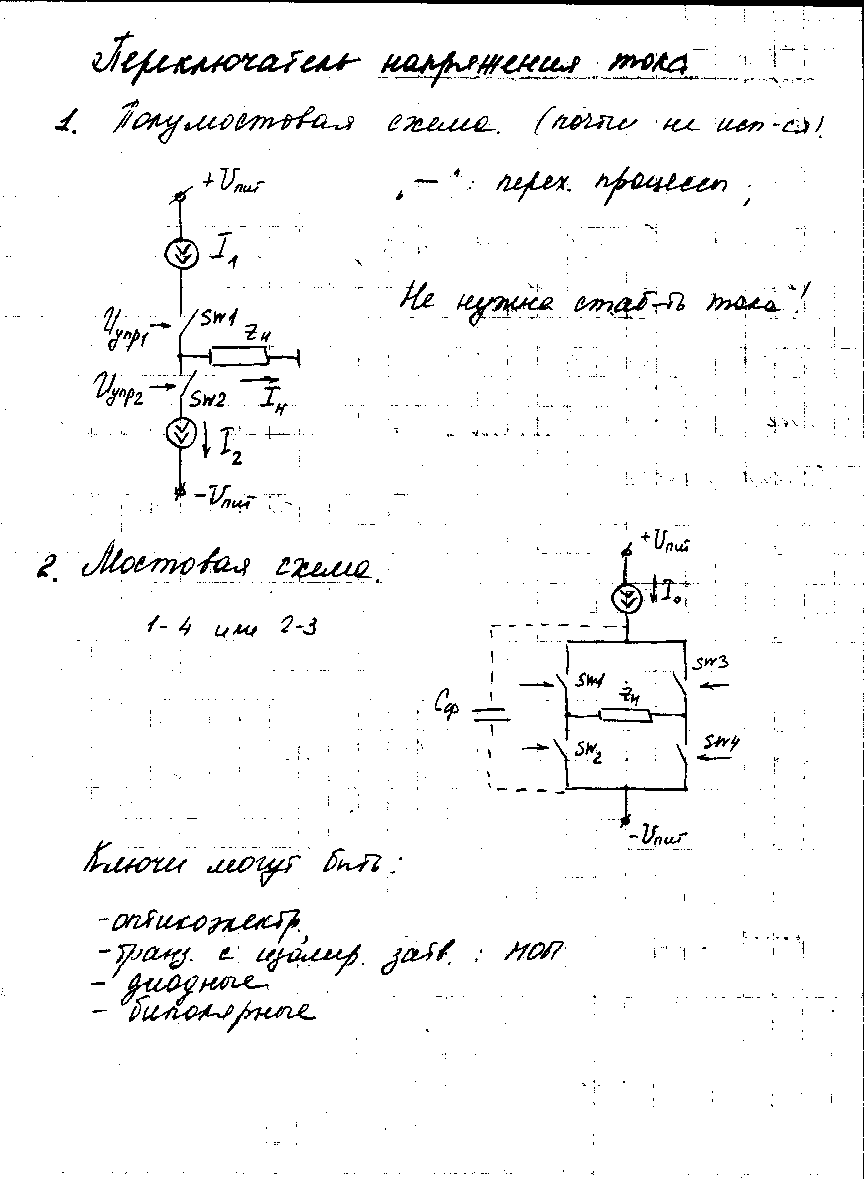 Переключатель напряжения тока
1. Полумостовая схема. (почти не исп-ся!
"—": перех. процессы;
Не нужна стаб-ть тока!
+Uпит
I1
Uупр1
SW1
Zн
Uупр2
SW2
Iн
I2
-Uпит
2. Мостовая схема.
1-4 или 2-3
+Uпит
I0
SW1
SW3
Zн
Cф
SW2
SW4
-Uпит
Ключи могут быть:
- оптикоэлектр.
- транз. с изолир. затв.: МОП
- диодные
- биполярные